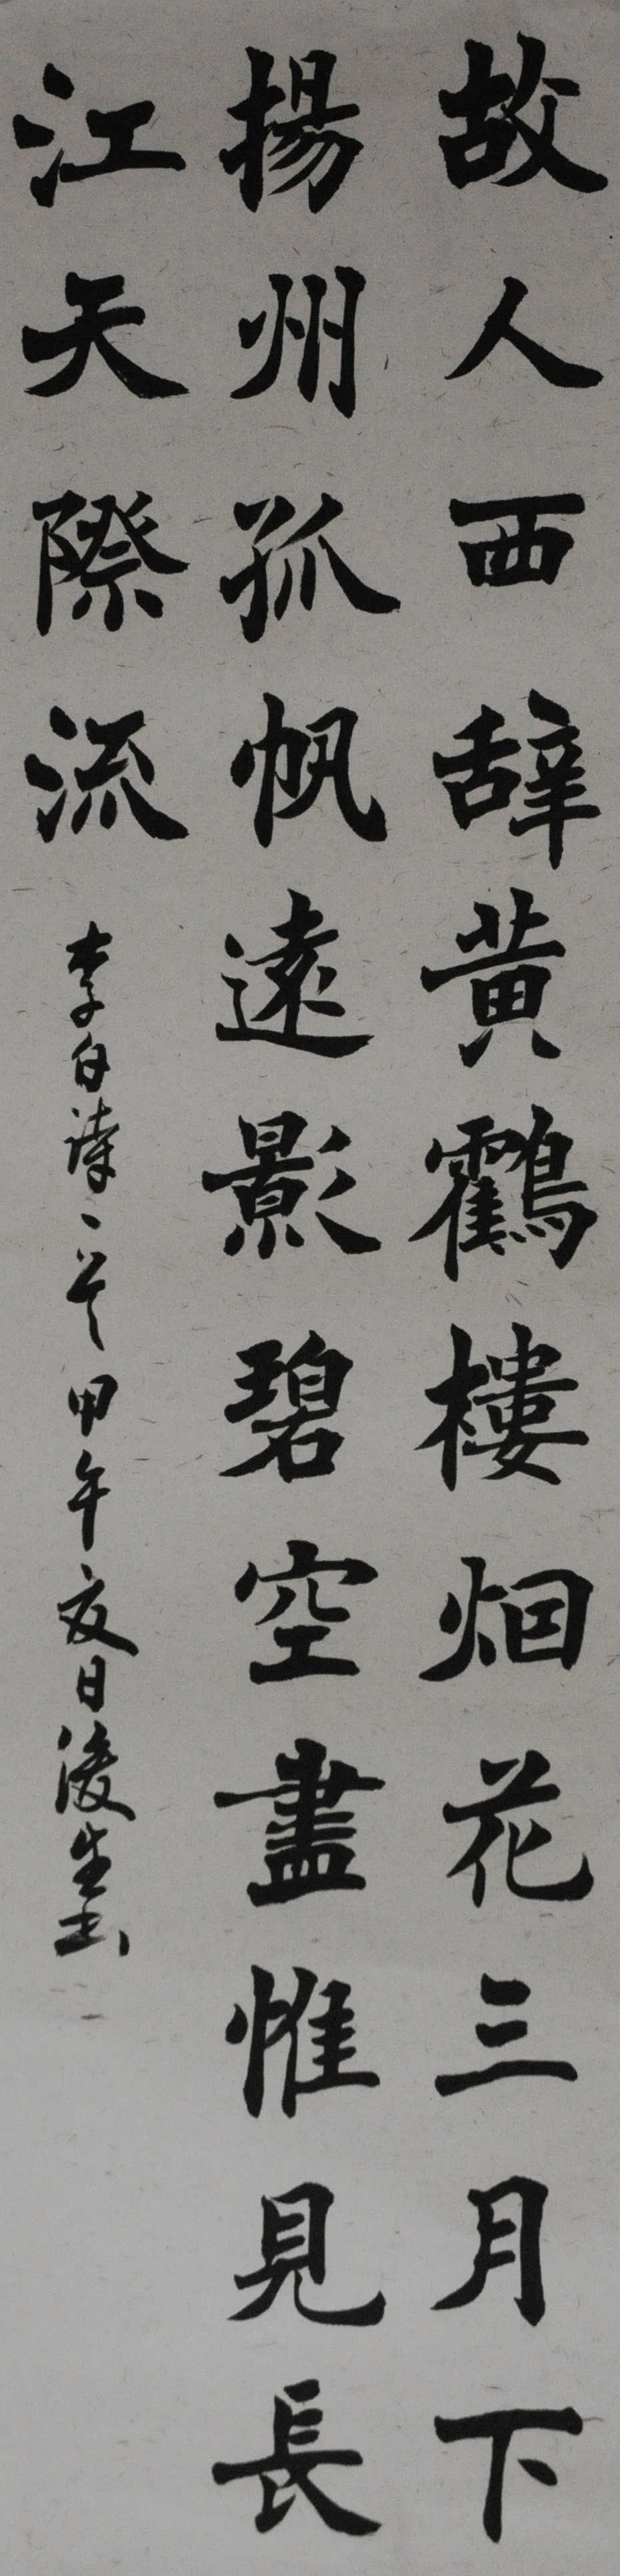 故人西辞黄鶴樓烟花三月下
揚州孤帆遠影碧空盡惟見長
江天際流
李白诗一首甲午夏日後生书